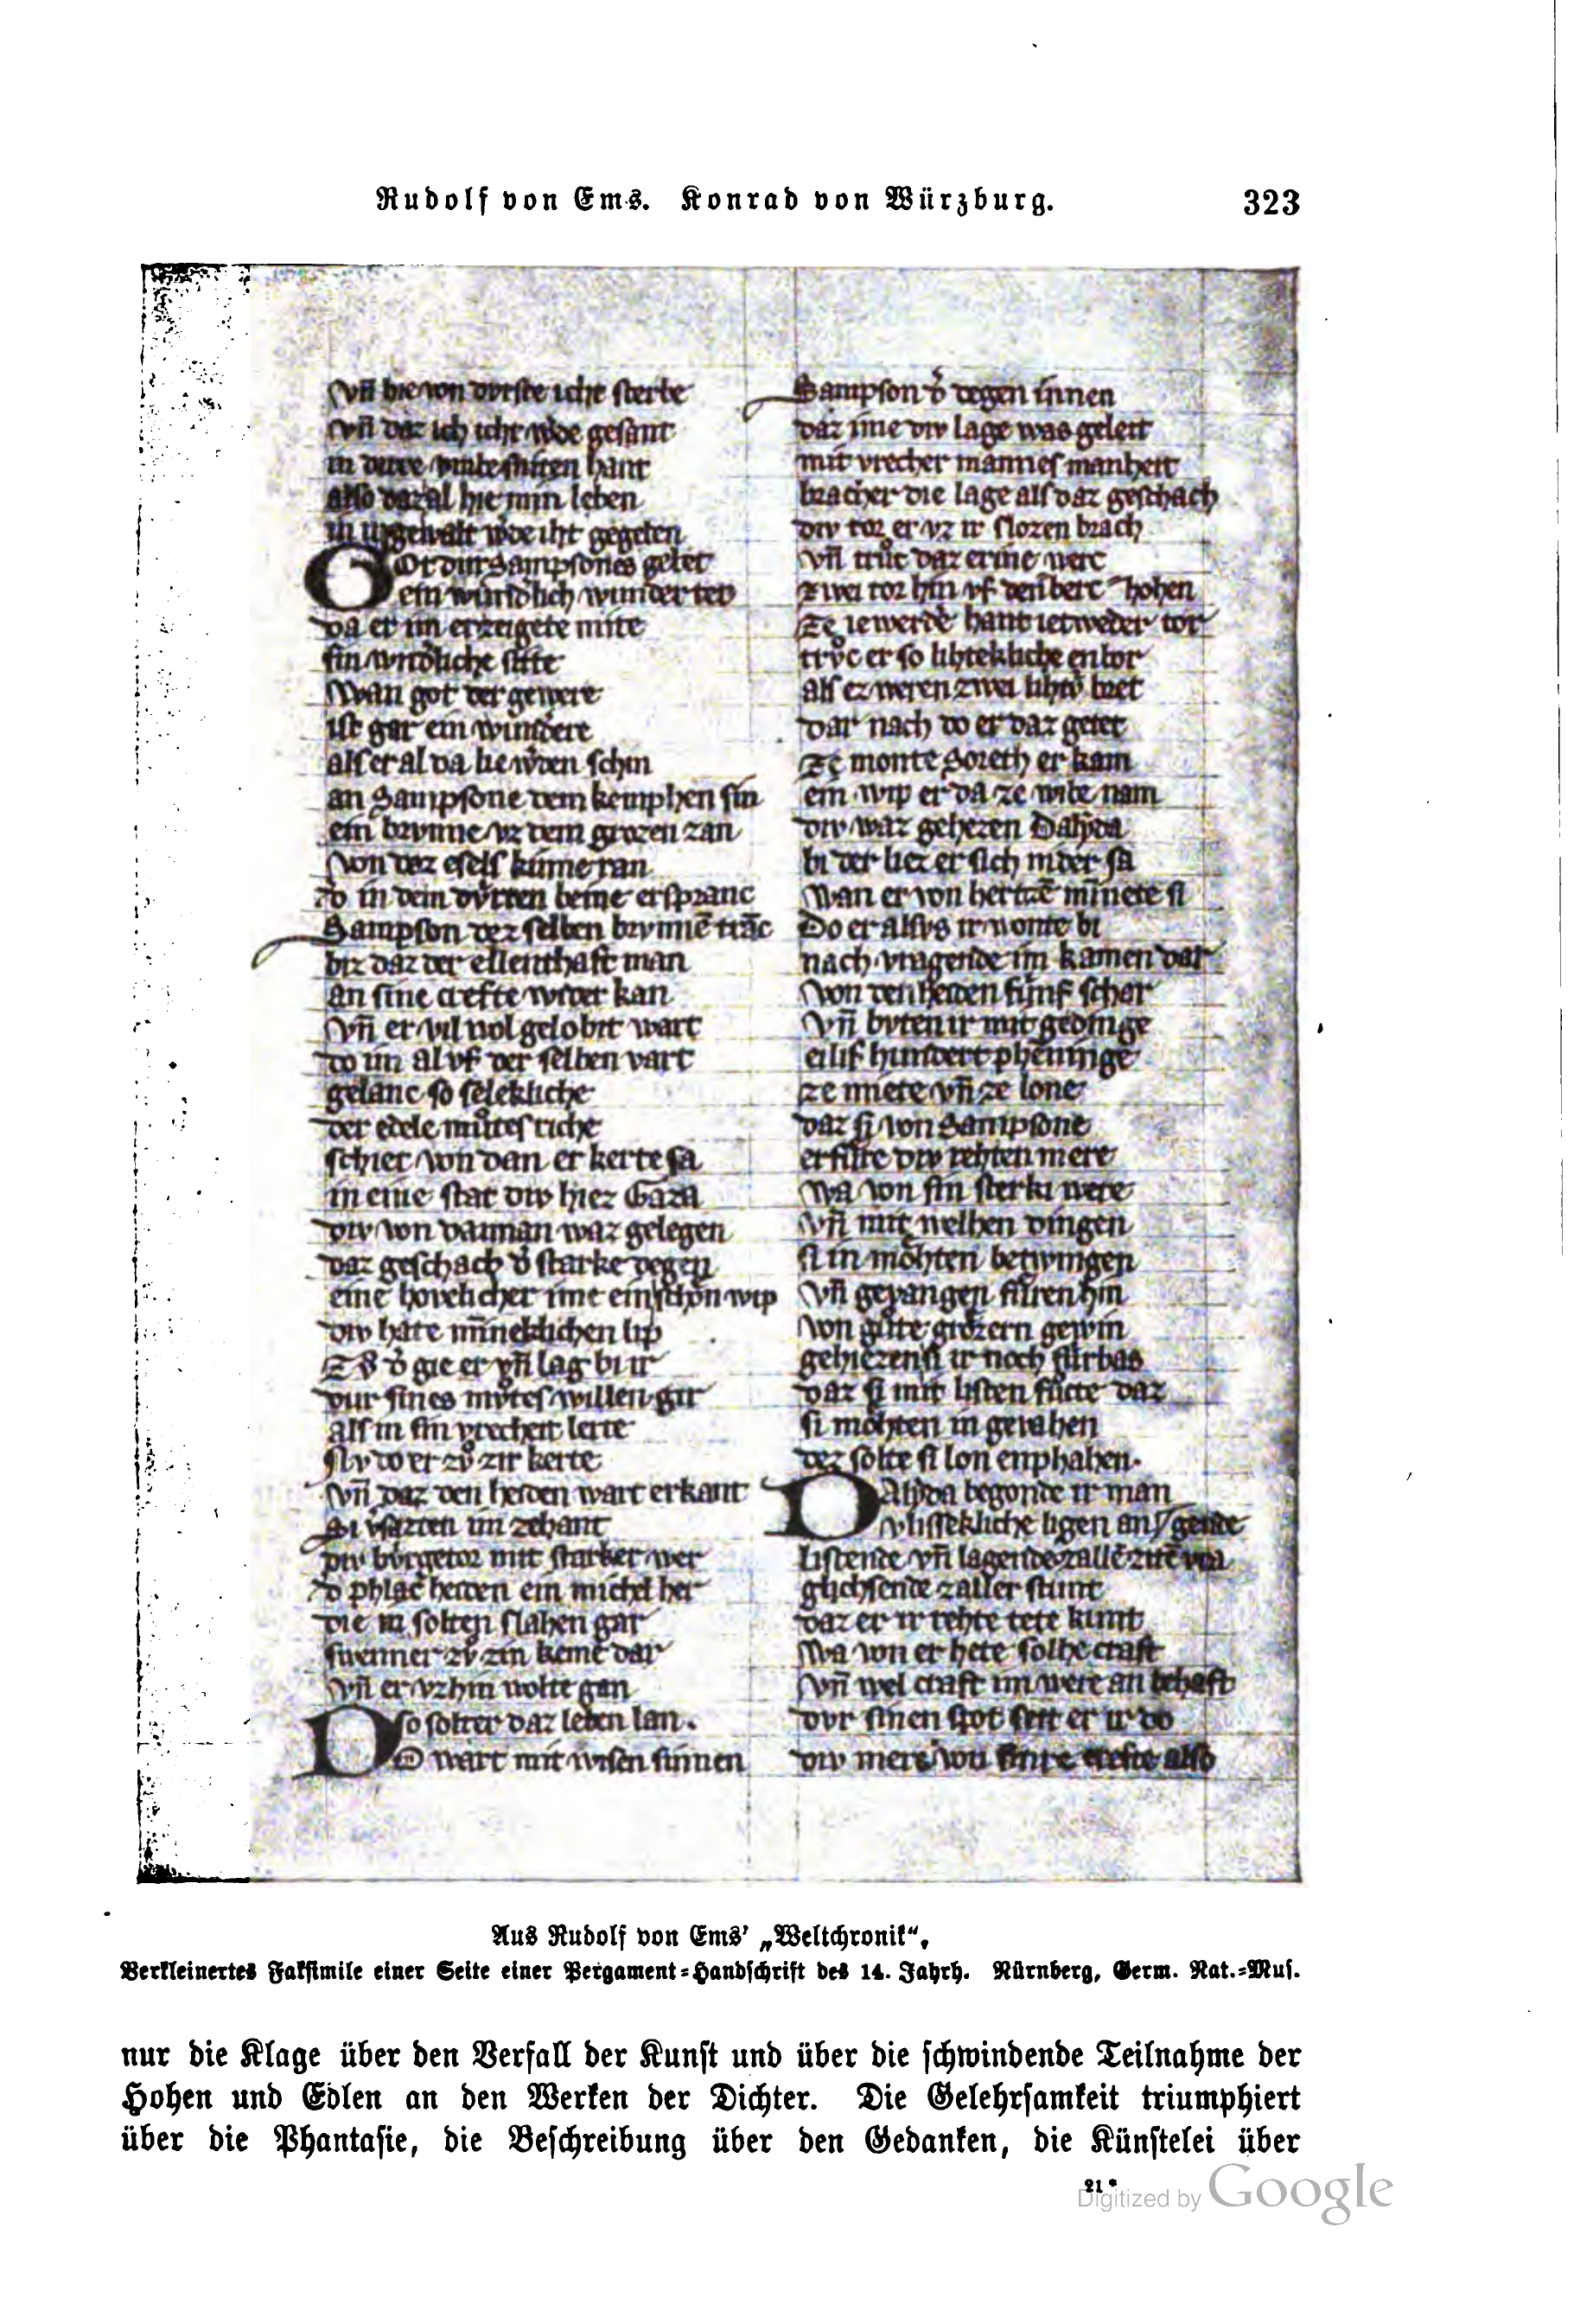 Rudolf von Ems. Konrad von Würzburg. 323
vn̄ hie von dvrste icht sterbe
vn̄ daz ich icht w̓de gesant
in hant
also daz al hie min leben
w̓de iht gegeben
Got dur Sampsones gebet
ein wundͤlich wunder tet
da er im erzeigete mite
sin wndͤliche sitte
Wan got der gewere
ist gar ein wundere
als er al da lie w̓den schin
an Sampsone dem kemphen sin
ein brvnne vz dem grozen zan
von dez esels kinne ran
do in dem dvrren beine erspranc
Sampson dez selben brvnnē trāc
biz daz der ellenthaft man
an sine crefte wider kan
vn̄ er vil wol gelobit wart
do im al vf der selben vart
gelanc so seleklichē
der edele mvͦtes riche
schiet von dan er kerte sa
in eine stat div hiez Gaza
div von waz gelegen
daz geschach dͤ starke degen
eine schon wip
div hate mīneklichen lip
gie er vn̄ lag bi ir
dur sines mvͦtes willen gir
als in sin vrecheit lerte
kerte
vn̄ daz den heiden wart erkant
Si im zehant
div bvrgetor mit starker wer
do heiden ein michel her
die in solten slahen gar
swenner zvͦ zin keme dar
vn̄ er vz hin wolte gan
so solter daz leben lan.
Do wart mit wisen sinnen
Sampson dͤ degen innen
daz ime div lage was geleit
mit vrecher mannes manheit
bracher die lage als daz geschach
div tor er vz ir slozen brach
vn̄ trvͦc daz
zwei tor hin vf den berc hohen
ze iewerdͤ hant ietweder tor
trvͦc er so lihtekliche enbor
als ez weren zwei lihtv̓ bret
dar nach do er daz getet
ze monte Soreth er kam
ein wip er da ze wibe nam
div waz geheizen Dalyda
bi der liez er sich nider sa
Wan er von hertzē mīnete si
Do er alsvs ir wonte bi
nach vragende im kamen dar
von den heiden fiunf schar
vn̄ bvten ir mit gedinge
eilif hundert phenninge
ze miete vn̄ ze lone
daz si von Sampsone
erfüre div rehten mere
wa von sin sterki were
vn̄ mit welhen dingen
si in möhten betwingen
vn̄ gevangen füren hin
von gvͦte grozern gewin
gehiezen si ir noch fürbas
daz si mit listen fücte daz
si möhten in gevahen
dez solte si lon enphahen.
Dalyda begonde ir man
vlissekliche ligen an
listende vn̄ lagende zallē zitē
glichsende zaller stunt
daz er ir rehte tete kunt
wa von er hete solhe craft
vn̄ wel craft im were an behaft
dvr sinen spot seit er ir do
div mere von sinre crefte also
Aus Rudolf von Ems’ „Weltchronik“,
Verkleinertes Faksimile einer Seite einer Pergament-Handschrift des 14. Jahrh. Nürnberg, Germ. Nat.-Mus.
nur die Klage über den Verfall der Kunst und über die schwindende Teilnahme der
Hohen und Edlen an den Werken der Dichter. Die Gelehrsamkeit triumphiert
über die Phantasie, die Beschreibung über den Gedanken, die Künstelei über
21*
Digitized by Google